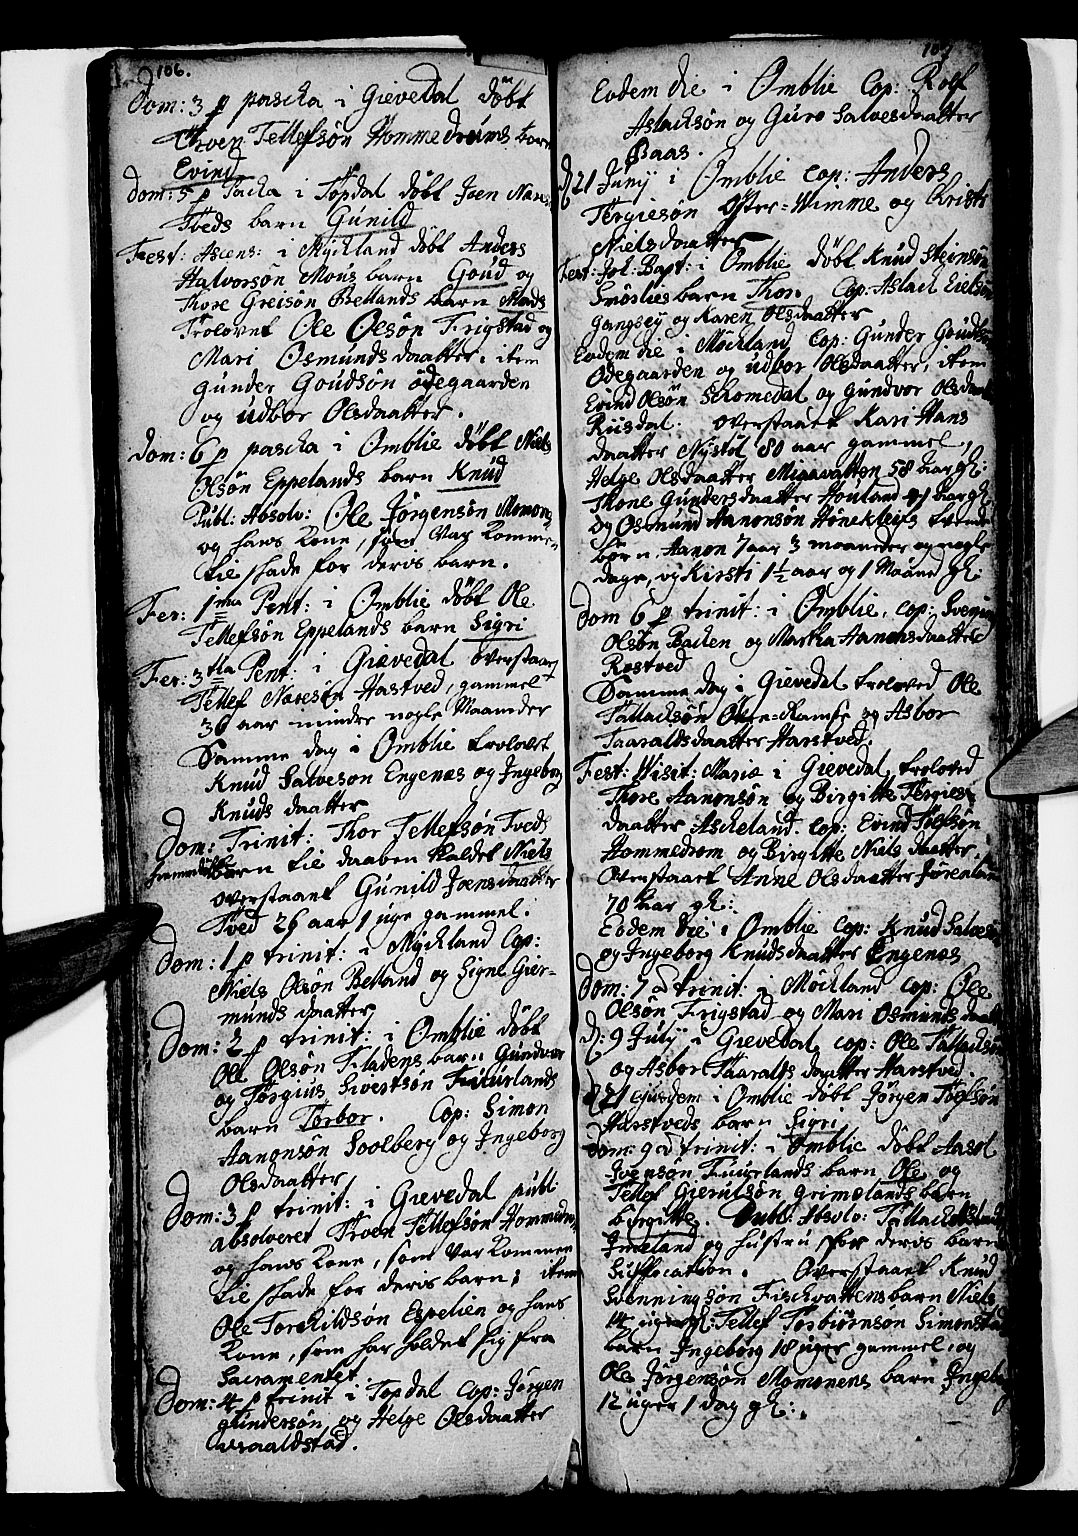 106.
Dom: 3 p pascha i Gievedal döbt
Troen Tellefsön Hommedroms barn
Evind
Dom: 5 p Pascha i Topdal döbt Joen
Tveds barn Gunild
Fest: Ascens: i Myckland döbt Anders
Halvorsön Mons barn Goud og
Thore Greisön Bellands barn Mads
Trolovet Ole Olsön Frigstad og
Mari Osmunds daatter. item
Gunder Goudsön ödegaarden
og Udbor Olsdaatter.
Dom: 6 p pascha i Omblie döbt Niels
Olsön Eppelands barn Knud
Publ: Absolv: Ole Jörgensön Momone
og hans Kone, som var kommen
til skade for deris barn.
Fer: 1ma Pent: i Omblie döbt Ole
Tellefsön Eppelands barn Sigri
Fer: 3tia Pent: i Gievedal overstaaet
Tellef Naresön Harstved, gammel
36 aar minder nogle Maander
Samme dag i Omblie trolovet
Knud Salveson Engenæs og Ingeborg
Knuds daatter
Dom: Trinit: Thor Tellefsön Tveds
hiemmedöbte barn til daaben kaldet Niels
overstaaet Gunild Joensdaatter
Tved 26 aar 1 uge gammel.
Dom: 1 p trinit: i Myckland Cop:
Niels Olsön Belland og Signe Gier-
munds daatter
Dom: 2 p trinit: i Omblie döbt
Ole Olsön Fladens barn Gundvor
og Torgius Sivertsön Fiuurlands
barn Torbor. Cop: Simon
Aanonsön Soolberg og Ingeborg
Olsdaatter
Dom: 3 p trinit: i Gievedal publ:
absolveret Troen Tellefsön Hommedrom
og hans Kone, som var kommen
til skade for deris barn; item
Ole Torchildsön Espelien og hans
Kone, som har holdet sig fra
Sacramentet
Dom: 4 p trinit i Topdal Cop: Jörgen
gundersön og Helge Olsdaatter
vraaldstad.
107
Eodem die i Omblie Cop: Rolf
Aslacksön og Guro Salvesdaatter
Baas.
D 21 Junij i Omblie Cop: Anders
Tergiesön Ofter-Wimme og Kristi
Nielsdaatter
Fest: Joh: Bapt: i Omblie döbt Knud Steensön
Smöslies barn Thor. Cop: Aslach Eielsön
Gangsey og Karen Olsdaatter
Eodem die i Möckland Cop: Gunder Goudsön
Odegaarden og Udbor Olsdaatter, item
Evind Olsön Schomedal og Gundvor Olsdaatter
Riisdal. overstaaet Kari Hans
daatter Nystöl 80 aar gammel,
Helge Olsdaatter Miaavatten 58 aar gl:
Thone Gundersdaatter Houland aar gl:
Og Osmund Aanonsön Hönekleifs tvende
börn. Aanon 7 aar 3 maander og nogle
dage, og Kirsti 1½ aar og 1 Maane gl:
Dom 6 p trinit: i Omblie, Cop: Svenin
Olsön Backen og Martha Aanonsdaatter
Rostved
Samme dag i Gievedal troloved Ole
Tallacksön Ovre-Ramse og Asbor
Taaraldsdaatter Harstved.
Fest: Visit: Mariæ i Gievedal, troloved
Thore Aanonsön og Birgitte Tergies
daatter Ascheland. Cop: Evind Toefsön
Hommedrom og Birgitte Niels daatter.
Overstaaet Anne Olsdaatter Jörenland
70 aar gl:
Eodem die i Omblie Cop: Knud Salvesön
og Ingeborg Knudsdaatter Engenæs
Dom: 7 p trinit: i Möckland Cop: Ole
Olsön Frigstad og Mari Osmunds daatter
D: 9 July i Gievedal Cop: Ole Tallacksön
og Asbor Taaralds daatter Harstved.
D 21 ejusdem i Omblie döbt Jörgen Toefsön
Harstveds barn Sigri
Dom: 9 p trinit: i Omblie döbt Aasol
Svensön Fiuurlands barn Ole og
Tellef Gierulsön Grimelands barn
Byrgitte. Publ: Absolv: Tallack
Imeland og hustru for deris barns
Suffocation. Overstaaet Knud
Svenningsön Fischvattens barn Niels
14 uger gl: Tellef Torbiörnsön Simonstad
barn Ingeborg 18 uger gammel, og
Ole Jörgensön Momonens barn Ingeborg
12 uger 1 dag gl: